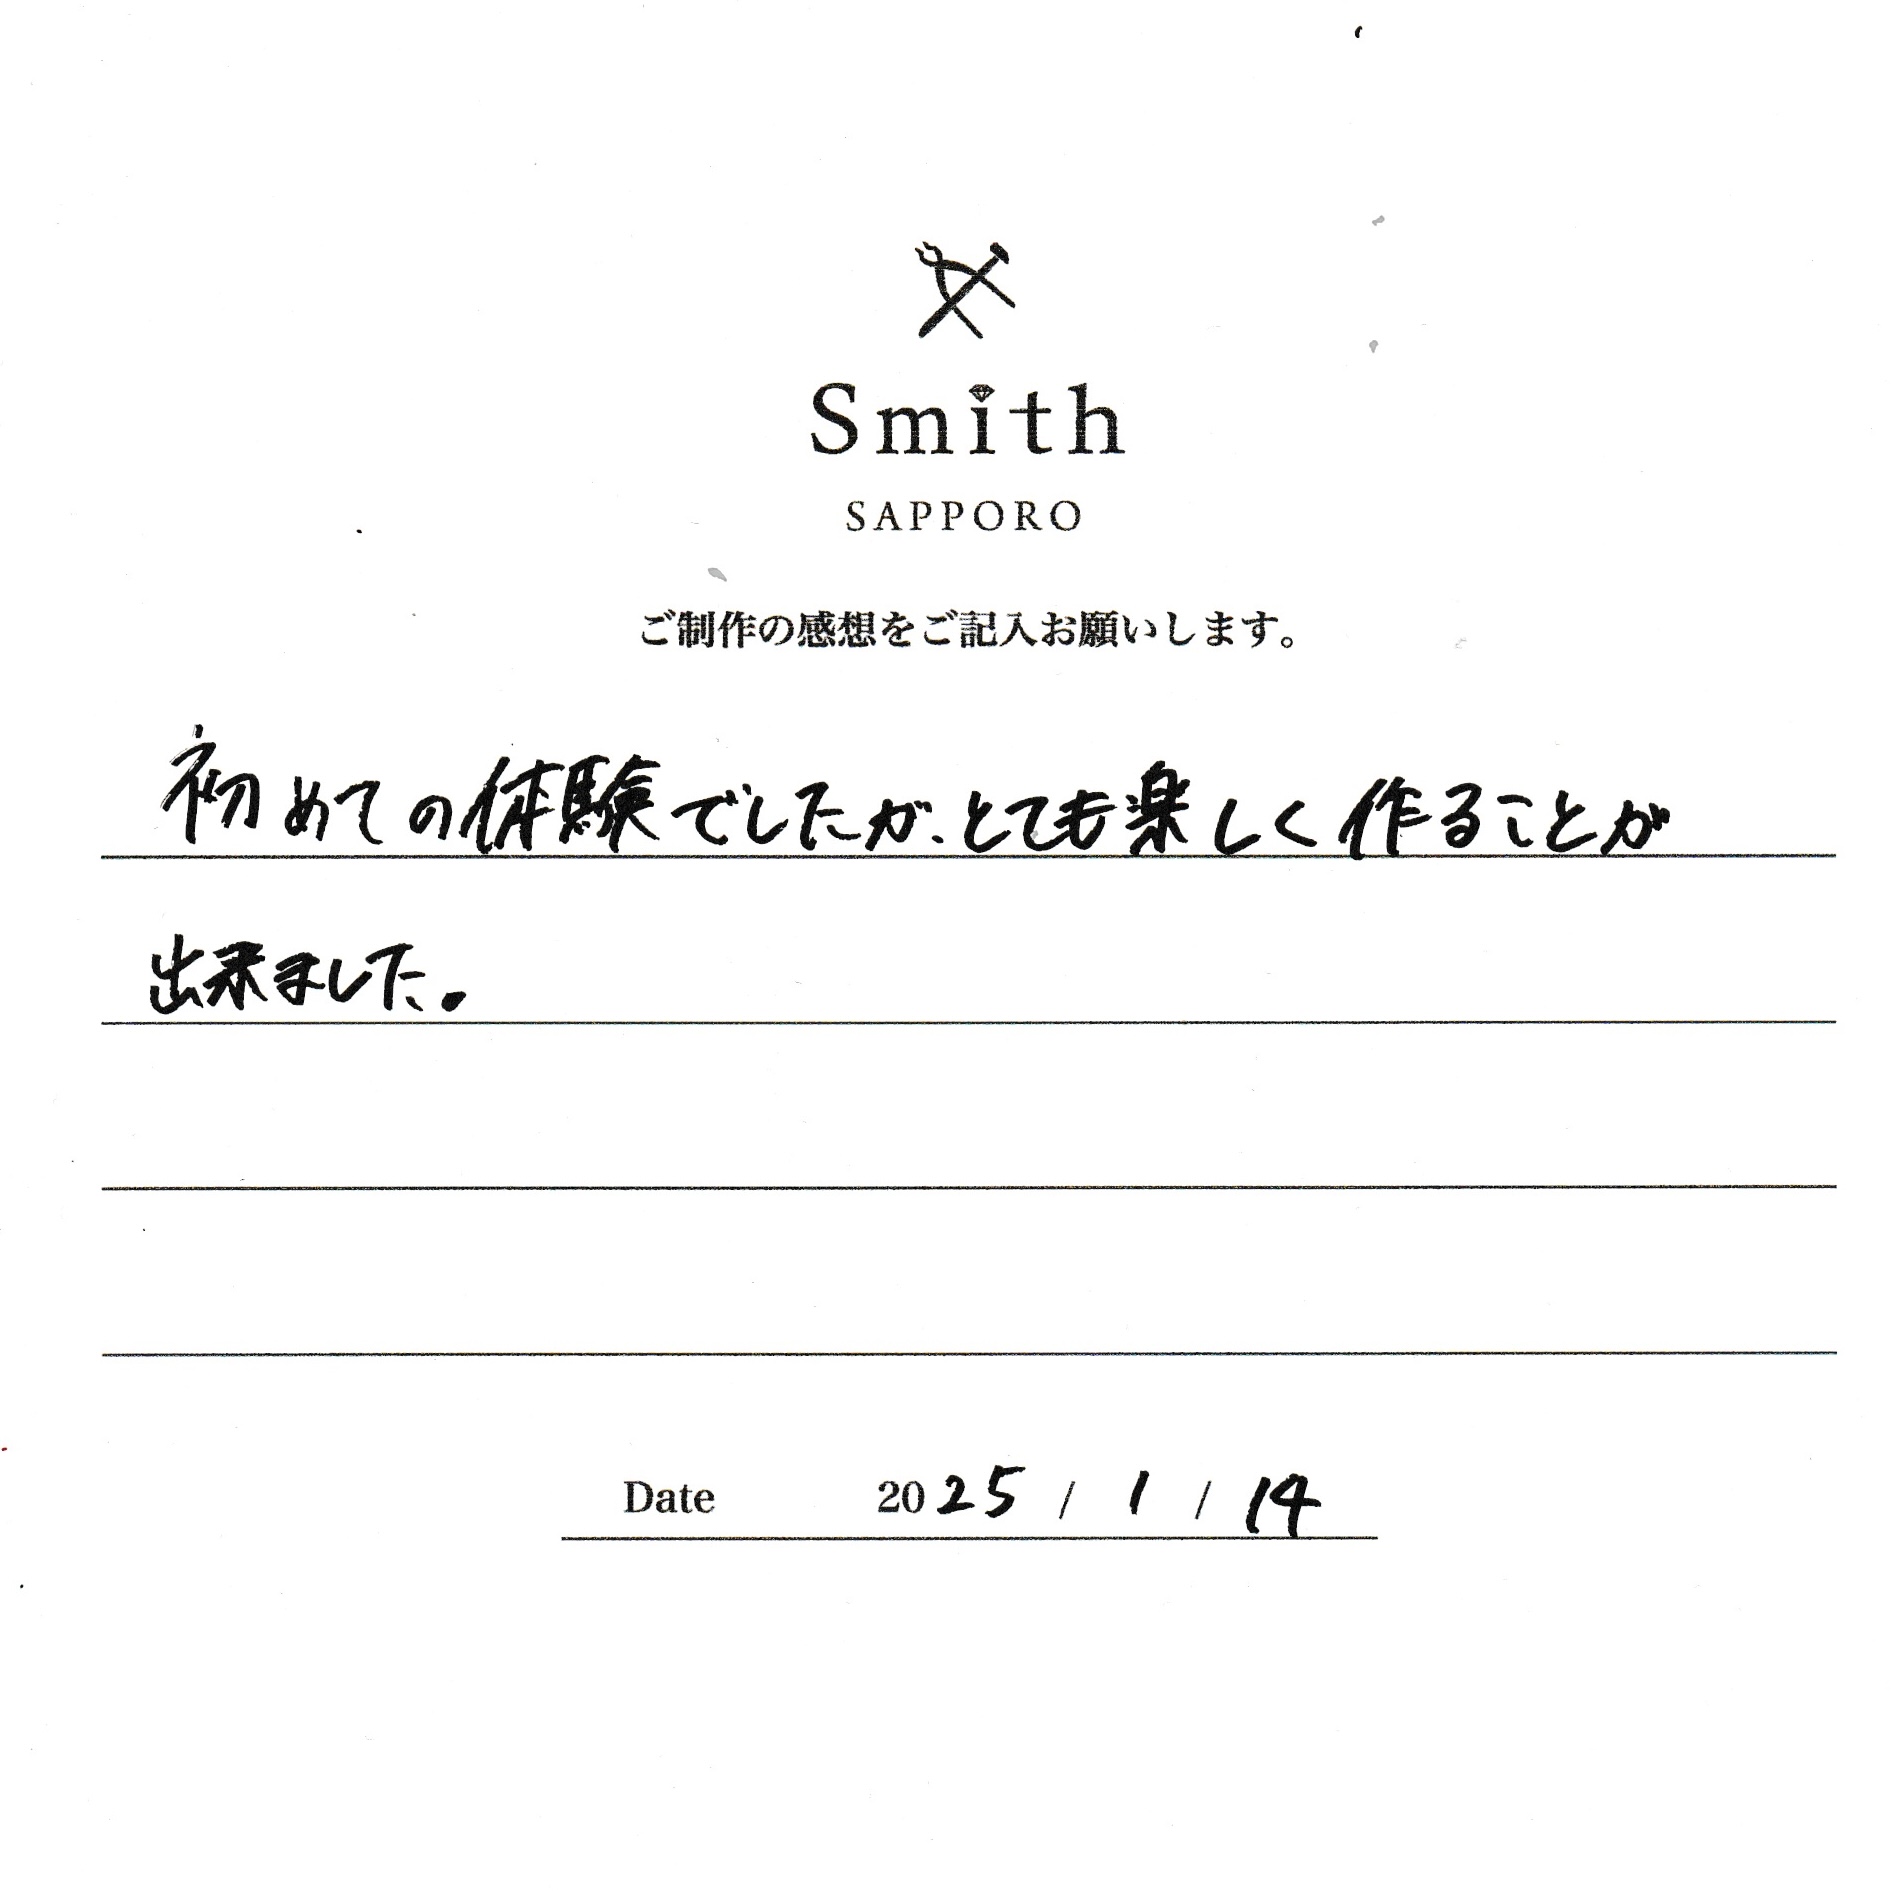 Smith
SAPPORO
ご制作の感想をご記入お願いします。
初めての体験でしたが、とても楽しく作ることが
出来ました。
Date 2025 / 1 / 14